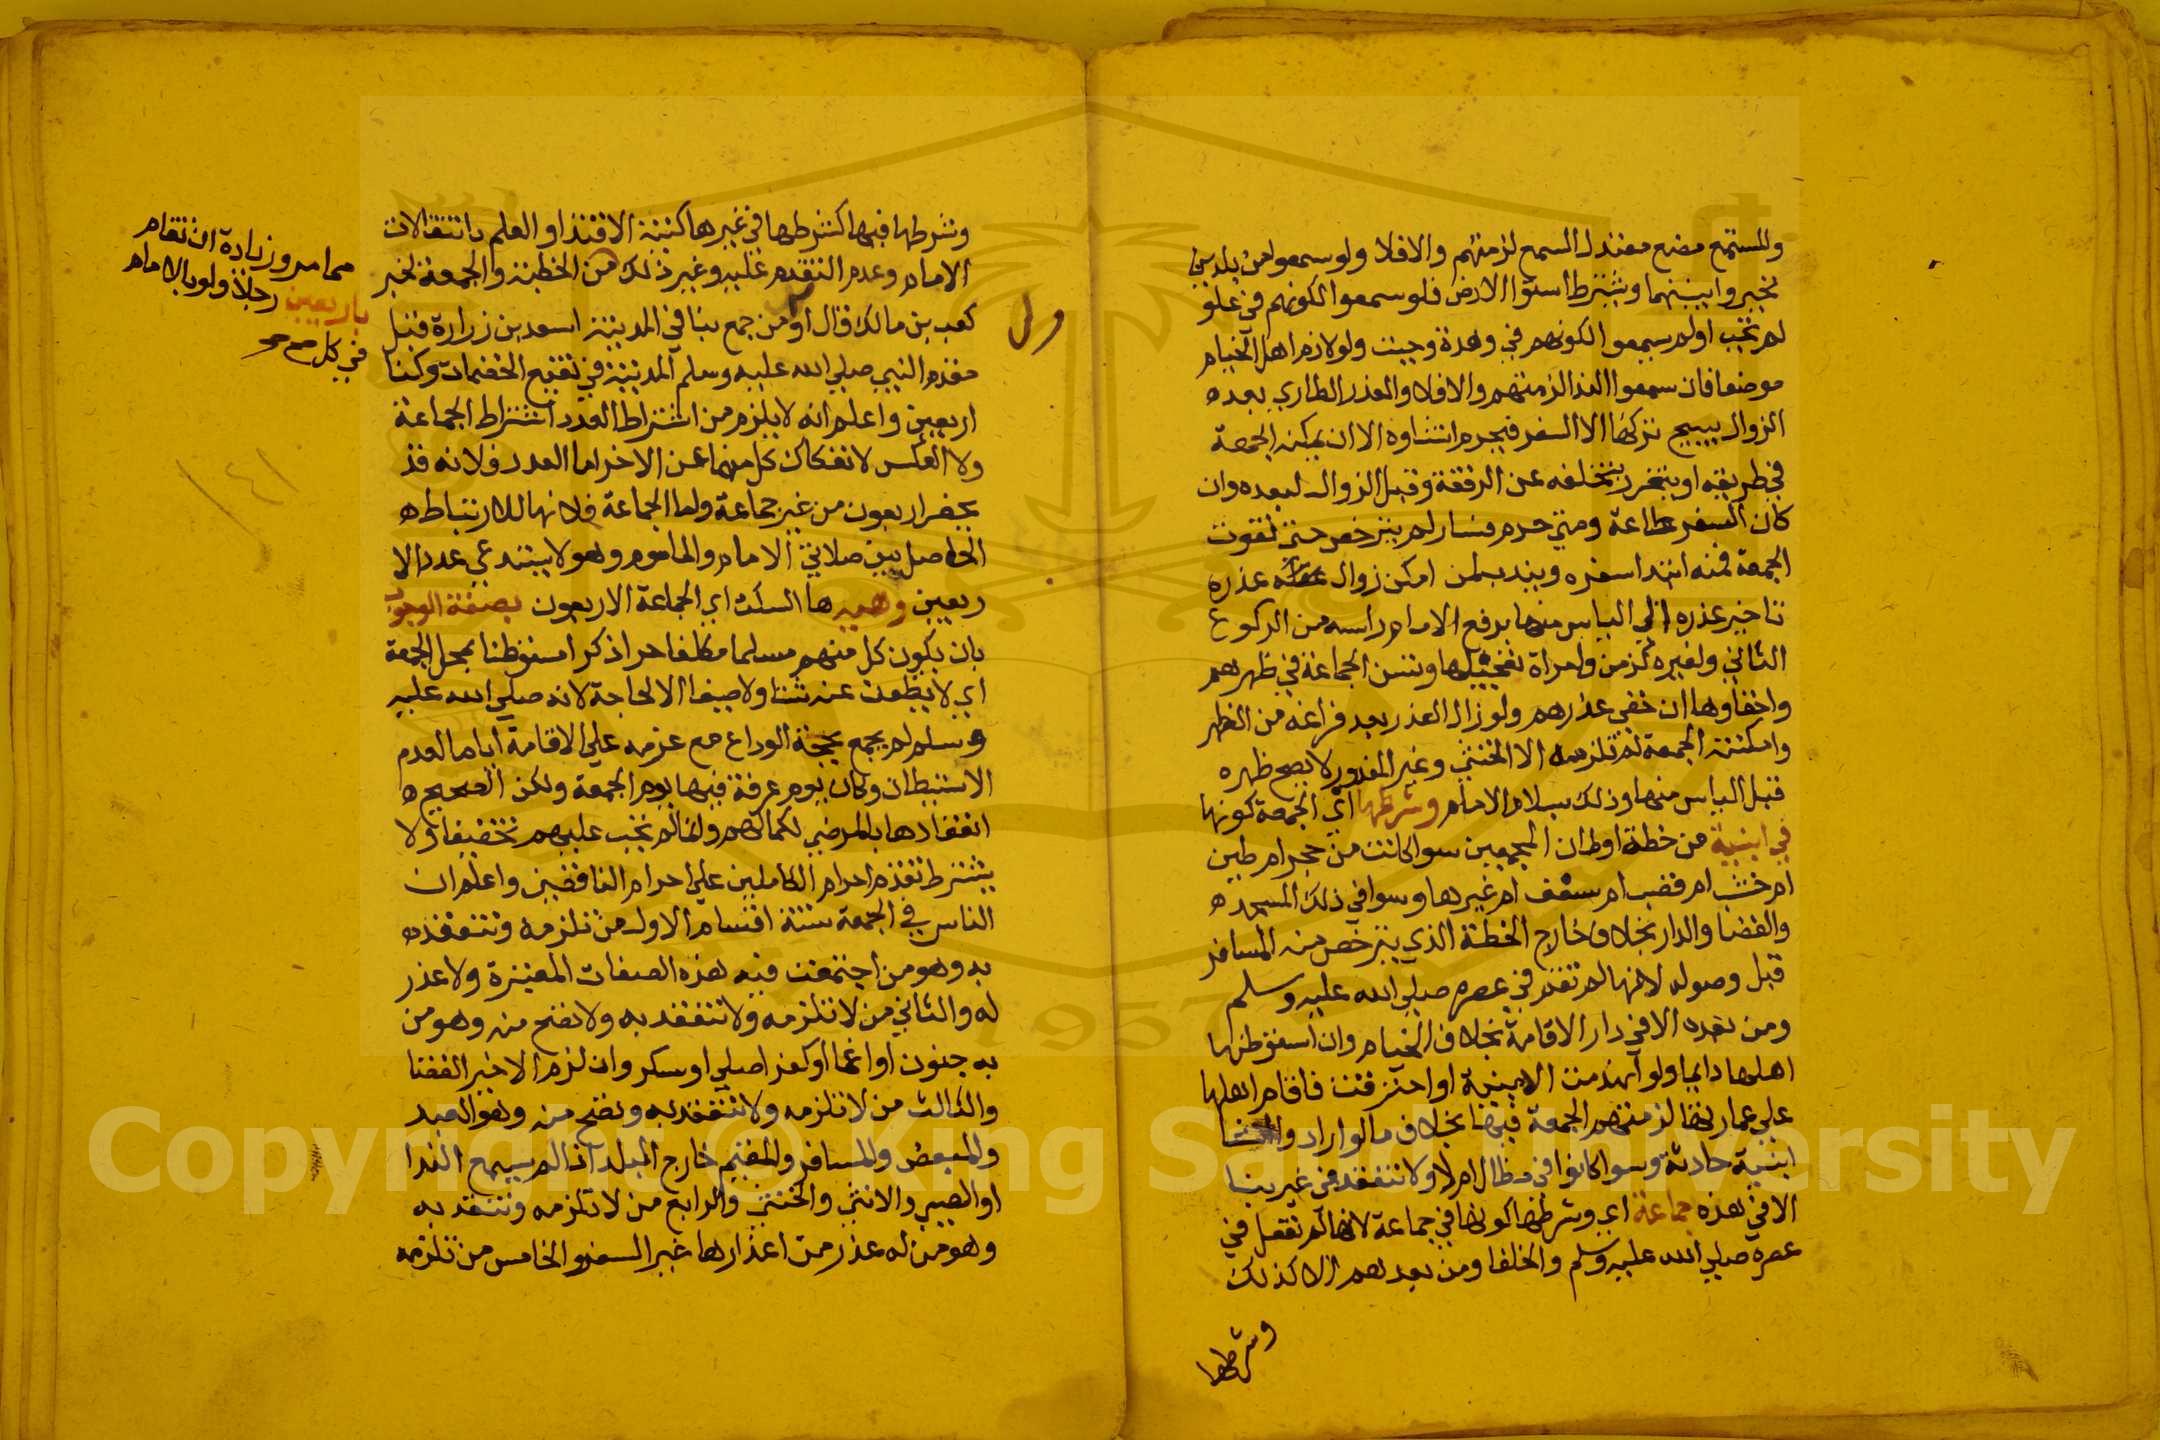 وللمستمع مصغ معتدل السمع لزمتهم والافلا ولو سمعوا من بلدين
تخيروا بينهما ويشترط استوا الارض فلو سمعوا لكونهم في علو
لم تجب اولم يسمعوا لكونهم في وهدة وجبت ولو لازم اهل الخيام
موضعا فان سمعوا الندا لزمتهم والافلا والعذر الطاري بعده
الزوال يبيح تركها الا السفر فيحرم انشاوه الا ان يمكنه الجمعة
في طريقه او يتضرر بتخلفه عن الرفقة وقبل الزوال لبعده وان
كان السفر طاعة ومتي حرم فسار لم يترخص حتي تفوت
الجمعة فمنه ابتدا سفره ويندب لمن امكن زوال عذره
تاخير عذره الي الياس منها برفع الامام راسه من الركوع
الثاني ولغيره كزمن وامراة تعجيلها وتسن الجماعة في ظهرهم
واخفاوها ان خفي عذرهم ولو زال العذر بعد فراغه من الظهر
وامكنته الجمعة لم تلزمه الا الخنثي وغير المعذور لا يصح ظهره
قبل الياس منها وذلك بسلام الامام وشرطها اي الجمعة كونها
في ابنية من خطة اوطان المجمعين سوا كانت من حجر ام طين
ام خشب ام قصب ام سعف ام غيرها وسوا في ذلك المسجده
والفضا والدار بخلاف خارج الخطة الذي يترخص منه المسافر
قبل وصوله لانها لم تقم في عصره صلي الله عليه وسلم
ومن بعده الا في دار الاقامة بخلاف الخيام وان استوطنها
اهلها دايما ولو انهدمت الابنية او احترقت فاقام اهلها
علي عمارتها لزمتهم الجمعة فيها بخلاف ما لو ارادوا
ابنية حادثة وسوا كانوا في مظال ام لا ولا تنعقد في غير بنا
الا في هذه جماعة اي وشرطها كونها في جماعة لانها لم تفعل في
عصره صلي الله عليه وسلم والخلفا ومن بعدهم الا كذلك
وشرطها
وشرطها فيها كشرطها في غيرها كنية الاقتدا والعلم بانتقالات
الامام وعدم التقدم عليه وغير ذلك من الخطبة والجمعة لخبر
كعب بن مالك قال اومن جمع بنا في المدينة اسعد بن زرارة قبل
ول
مقدم النبي صلي الله عليه وسلم المدينة في نقيع الخضمات وكنا
اربعين واعلم انه لا يلزم من اشتراط العدد اشتراط الجماعة
ولا العكس لانفكاك كل منهما عن الاخر اما العدد فلانه قد
يحضر اربعون من غير جماعة واما الجماعة فلانها للارتباط ه
الحاصل بين صلاتي الامام والماموم وهو لا يستدعي عدد الا
ربعين وهم ها السكت اي الجماعة الاربعون بصفة الوجوب
بان يكون كل منهم مسلما مكلفا حرا ذكرا مستوطنا بمحل الجمعة
اي لا يظعن عنه شتا ولا صيفا الا لحاجة لانه صلي الله عليه
وسلم لم يجمع بحجة الوداع مع عزمه علي الاقامة اياما لعدم
الاستيطان وكان يوم عرفة فيها يوم الجمعة ولكن الصحيح ه
انعقادها بالمرضي لكمالهم وانما لم تجب عليهم تخفيفا ولا
يشترط تقدم احرام الكاملين علي احرام الناقصين واعلم ان
الناس في الجمعة ستة اقسام الاول من تلزمه وتنعقده
به وهو من اجتمعت فيه هذه الصفات المعتبرة ولا عذر
له والثاني من لا تلزمه ولا تنعقد به ولا تصح منه وهو من
به جنون او اغما او كفر اصلي او سكر وان لزم الاخير القضا
والثالث من لا تلزمه ولا تنعقد به وتصح منه وهو العبد
والمبعض والمسافر والمقيم خارج البلد اذا لم يسمع الندا
او الصبي والانثي والخنثي والرابع من لا تلزمه وتنعقد به
وهو من له عذر من اعذارها غير السفر والخامس من تلزمه
مما مر وزيادة ان تقام
باربعين رجلا ولو بالامام
في كل صح
Copyright © King Saud University
1957